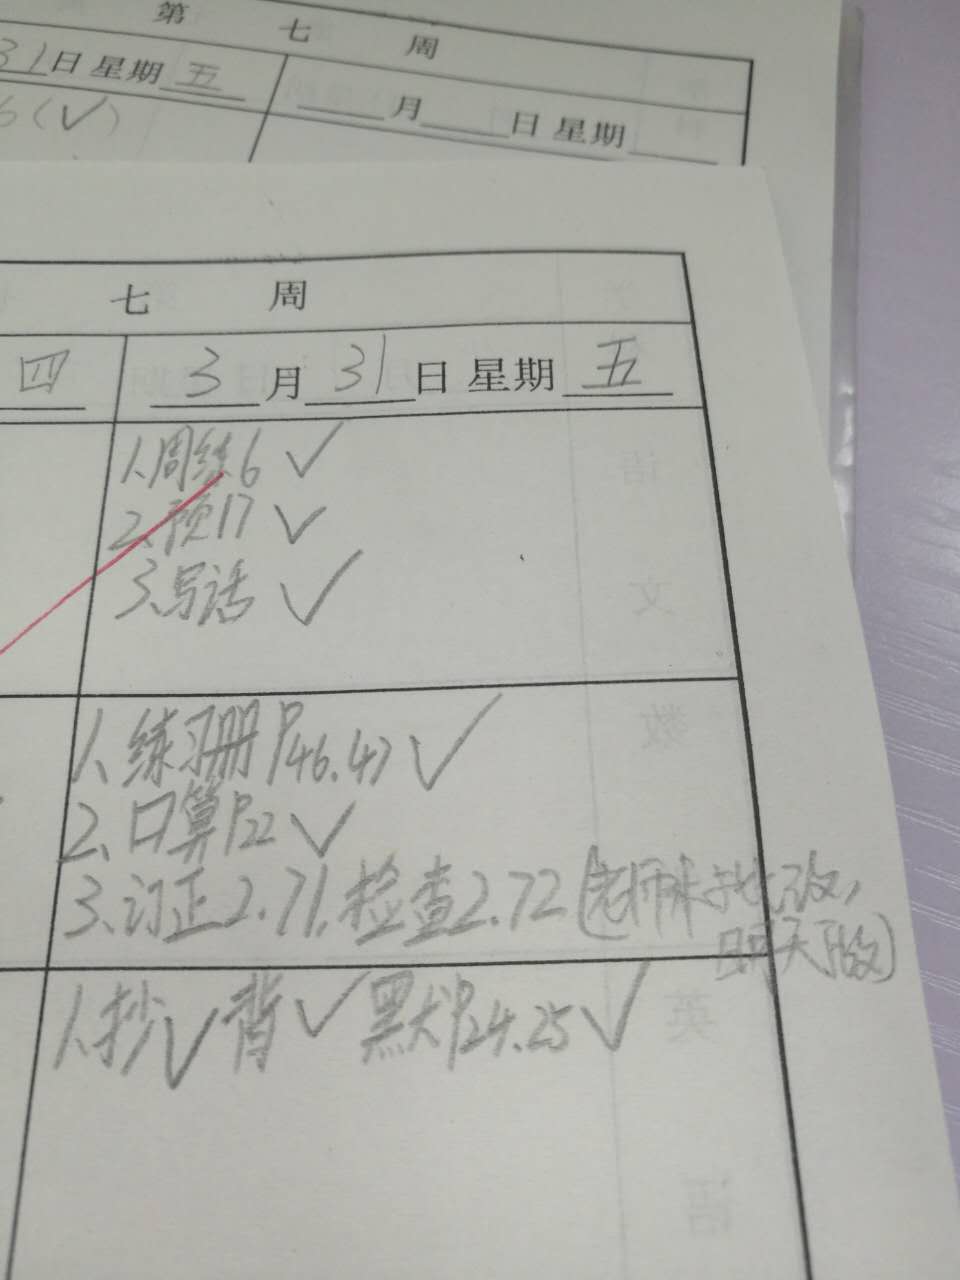 第 七 周
31日 星期 五
月 日 星期
6(✓)
七 周
四
3月31日 星期 五
1、周练6 ✓
2、预17 ✓
3、写话 ✓
1、练习册P46.47 ✓
2、口算P22 ✓
3、订正2.71,检查2.72(老师未批改,
明天改)
1、抄✓ 背✓ 默P24.25✓
语
文
数
英
语